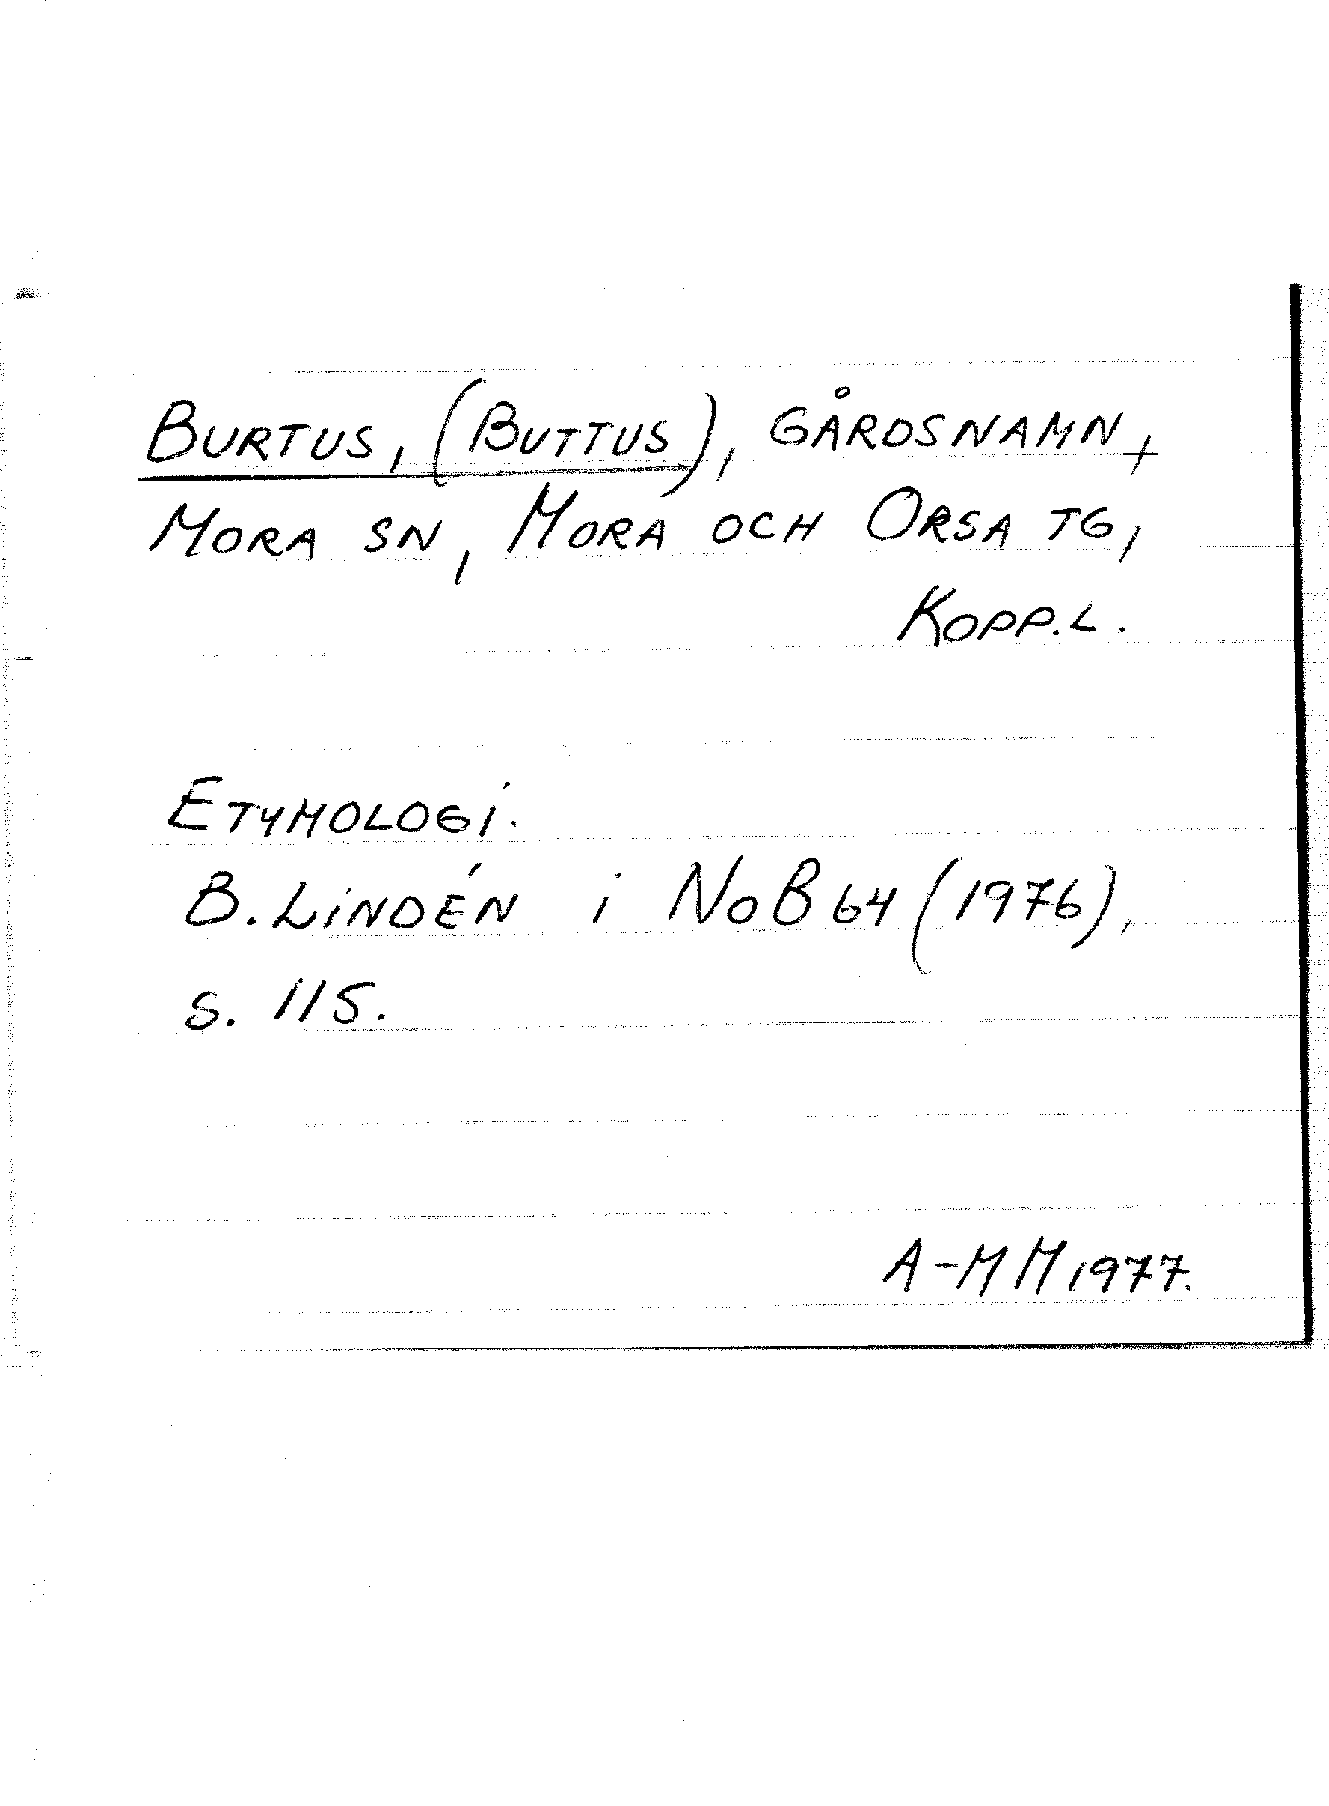 BURTUS, (BUTTUS), GÅRDSNAMN,
MORA SN, MORA OCH ORSA TG,
KOPP.L.
ETYMOLOGI.
B. LINDÉN i NoB 64 (1976),
s. 115.
A-MM 1977.